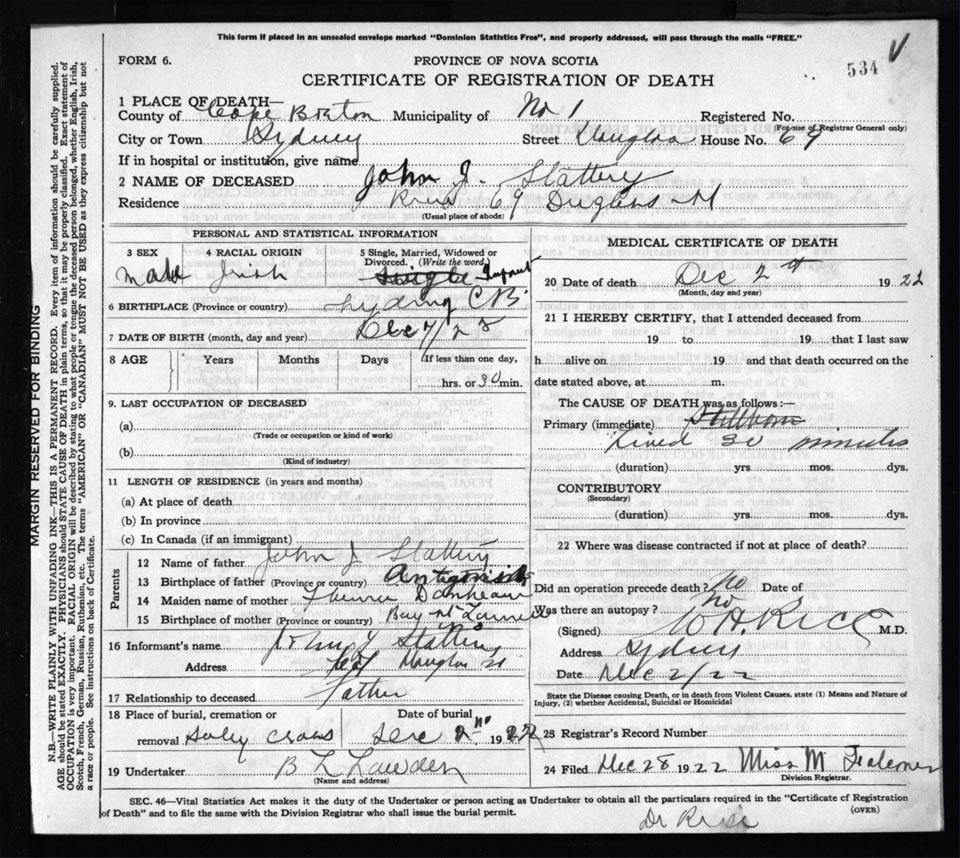 This form if placed in an unsealed envelope marked "Dominion Statistics Free", and properly addressed, will pass through the mails "FREE."
FORM 6.
PROVINCE OF NOVA SCOTIA
534
CERTIFICATE OF REGISTRATION OF DEATH
1 PLACE OF DEATH—
County of Cape Breton Municipality of No 1 Registered No.
(For use of Registrar General only)
City or Town Sydney Street Douglas House No. 69
If in hospital or institution, give name
2 NAME OF DECEASED John J. Slattery
Residence 69 Douglas St
(Usual place of abode)
PERSONAL AND STATISTICAL INFORMATION
3 SEX 4 RACIAL ORIGIN 5 Single, Married, Widowed or Divorced. (Write the word.)
Male Irish Single Infant
6 BIRTHPLACE (Province or country) Sydney C.B.
7 DATE OF BIRTH (month, day and year) Dec
8 AGE Years Months Days If less than one day,
hrs. or 30 min.
9. LAST OCCUPATION OF DECEASED
(a)
(Trade or occupation or kind of work)
(b)
(Kind of industry)
11 LENGTH OF RESIDENCE (in years and months)
(a) At place of death
(b) In province
(c) In Canada (if an immigrant)
Parents
12 Name of father John J Slattery
13 Birthplace of father (Province or country) Antigonish
14 Maiden name of mother
15 Birthplace of mother (Province or country) Bay St
16 Informant's name John J Slattery
Address 69 Douglas St
17 Relationship to deceased Father
18 Place of burial, cremation or removal Holy Cross Date of burial Dec 2nd 1922
19 Undertaker B L
(Name and address)
MEDICAL CERTIFICATE OF DEATH
20 Date of death Dec 2nd 1922
(Month, day and year)
21 I HEREBY CERTIFY, that I attended deceased from
19 to 19 that I last saw
h alive on 19 and that death occurred on the
date stated above, at m.
The CAUSE OF DEATH was as follows:—
Primary (immediate) Stillborn
Lived 30 minutes
(duration) yrs. mos. dys.
CONTRIBUTORY
(Secondary)
(duration) yrs. mos. dys.
22 Where was disease contracted if not at place of death?
Did an operation precede death? No Date of
Was there an autopsy? No
(Signed) W H. Rice M.D.
Address Sydney
Date Dec 2/22
State the Disease causing Death, or in death from Violent Causes, state (1) Means and Nature of
Injury, (2) whether Accidental, Suicidal or Homicidal
23 Registrar's Record Number
24 Filed Dec 28 1922 Miss M Falconer
Division Registrar.
SEC. 46—Vital Statistics Act makes it the duty of the Undertaker or person acting as Undertaker to obtain all the particulars required in the "Certificate of Registration
of Death" and to file the same with the Division Registrar who shall issue the burial permit. (OVER)
Dr Rice
MARGIN RESERVED FOR BINDING
N.B.—WRITE PLAINLY WITH UNFADING INK—THIS IS A PERMANENT RECORD. Every item of information should be carefully supplied.
AGE should be stated EXACTLY. PHYSICIANS should STATE CAUSE OF DEATH in plain terms, so that it may be properly classified. Exact statement of
OCCUPATION is very important. RACIAL ORIGIN will be described by stating to what people or tongue the deceased person belonged, whether English, Irish,
Scotch, French, German, Russian, Ruthenian, etc. The terms "AMERICAN" OR "CANADIAN" MUST NOT BE USED as they express citizenship but not
a race or people. See instructions on back of Certificate.